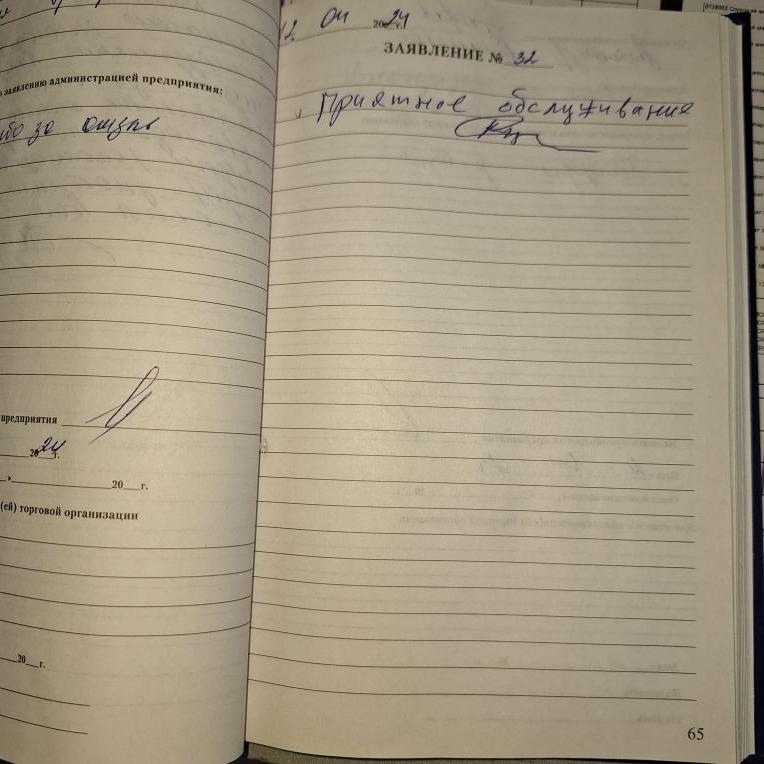 заявлению администрацией предприятия:
за отзыв
предприятия
2024г.
20__г.
(ей) торговой организации
20__г.
12. 04 2024 г.
ЗАЯВЛЕНИЕ № 32
Приятное обслуживание
65